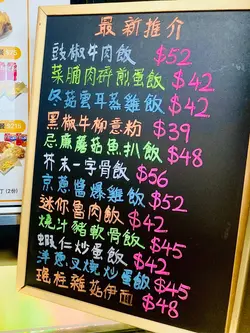 最新推介
豉椒牛肉飯 $52
菜脯肉碎煎蛋飯 $42
冬菇雲耳蒸雞飯 $42
黑椒牛柳意粉 $39
忌廉蘑菇魚扒飯 $48
芥末一字骨飯 $56
京蔥醬爆雞飯 $52
迷你魯肉飯 $42
燒汁豬軟骨飯 $45
蝦仁炒蛋飯 $42
洋蔥叉燒炒蛋飯 $45
瑤柱雜菇伊麵 $48